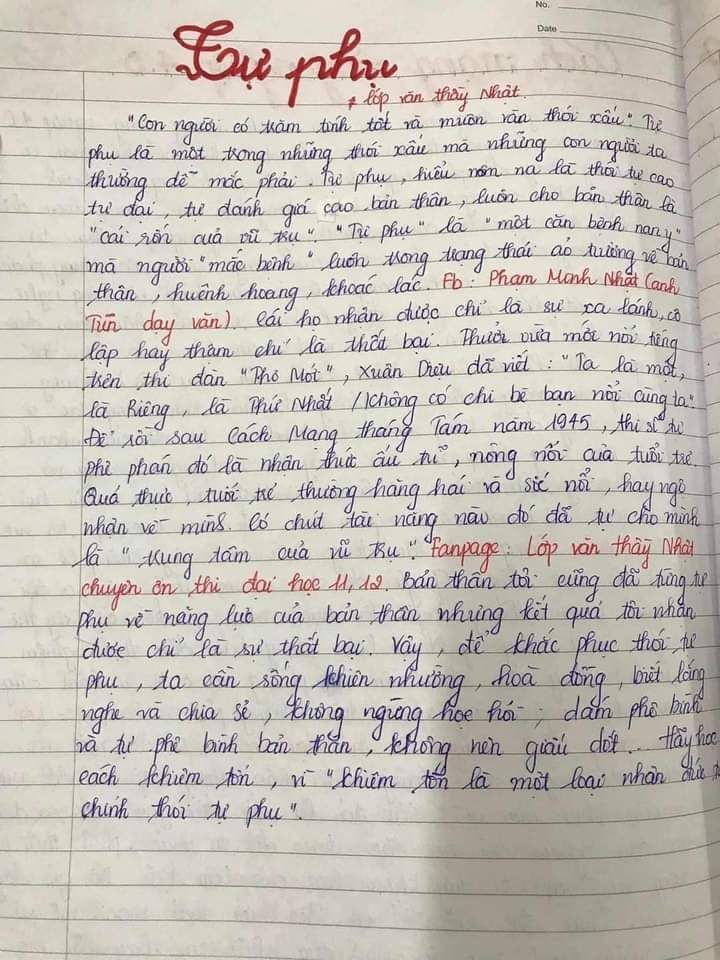 No.
Date
Tự phụ
* Lớp văn thầy Nhật.
"Con người có trăm tính tốt và muôn vàn thói xấu". Tự
phụ là một trong những thói xấu mà những con người ta
thường dễ mắc phải. Tự phụ, hiểu nôm na là thói tự cao
tự đại, tự đánh giá cao bản thân, luôn cho bản thân là
"cái rốn của vũ trụ". "Tự phụ" là "một căn bệnh nan y"
mà người "mắc bệnh" luôn trong trạng thái ảo tưởng về bản
thân, huênh hoang, khoác lác. Fb: Phạm Minh Nhật (anh
Tũn dạy văn). Cái họ nhận được chỉ là sự xa lánh, cô
lập hay thậm chí là thất bại. Thưở vừa mới nổi tiếng
trên thi đàn "Thơ Mới", Xuân Diệu đã viết: "Ta là một,
là Riêng, là Thứ Nhất / Không có chi bè bạn nổi cùng ta".
Để rồi sau Cách Mạng tháng Tám năm 1945, thi sĩ tự
phê phán đó là nhận thức ấu trĩ, nông nổi của tuổi trẻ.
Quả thực, tuổi trẻ thường hăng hái và sốc nổi, hay ngộ
nhận về mình. Có chút tài năng nào đó đã tự cho mình
là "trung tâm của vũ trụ". Fanpage: Lớp văn thầy Nhật
chuyên ôn thi đại học 11, 12. Bản thân tôi cũng đã từng tự
phụ về năng lực của bản thân nhưng kết quả tôi nhận
được chỉ là sự thất bại. Vậy, để khắc phục thói tự
phụ, ta cần sống khiên nhường, hoà đồng, biết lắng
nghe và chia sẻ, không ngừng học hỏi; dám phê bình
và tự phê bình bản thân, không nên giấu dốt... Hãy học
cách khiêm tốn, vì "khiêm tốn là một loại nhân đức
chính thói tự phụ".